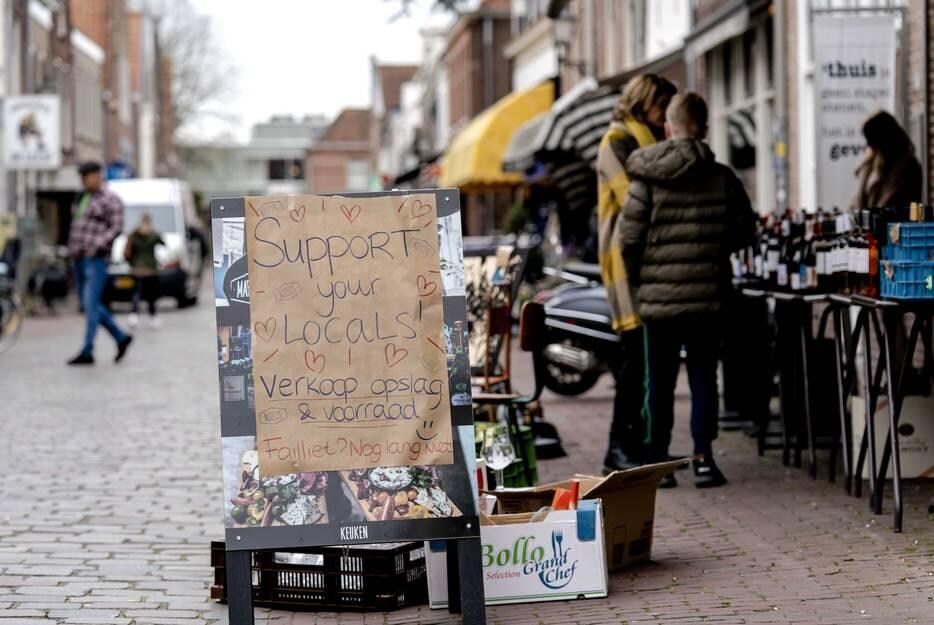 Support
your
Locals!
verkoop opslag
& voorraad
Failliet? Nog lang niet!
KEUKEN
Bollo
Selection Grand
Chef
'thuis
is
geen